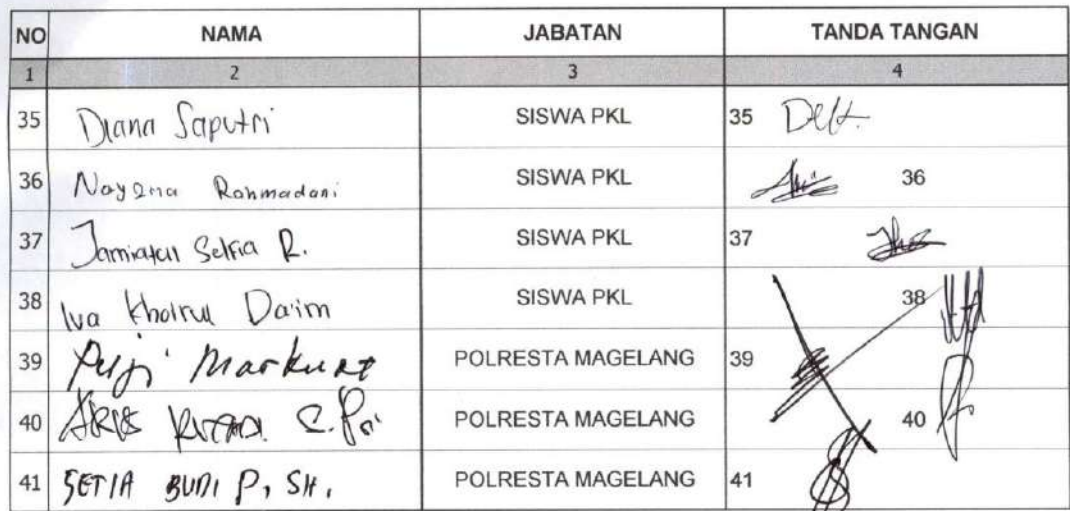 NO NAMA JABATAN TANDA TANGAN
1 2 3 4
35 Diana Saputri SISWA PKL 35
36 Nayena Rahmadani SISWA PKL 36
37 Jamiatul Selfia R. SISWA PKL 37
38 Iva Khoirul Da'im SISWA PKL 38
39 Puji Markuat POLRESTA MAGELANG 39
40 POLRESTA MAGELANG 40
41 SETIA BUDI P, SH, POLRESTA MAGELANG 41